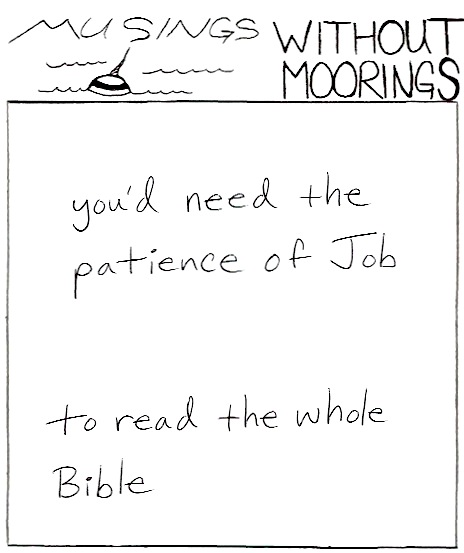 MUSINGS WITHOUT
MOORINGS
you'd need the
patience of Job
to read the whole
Bible